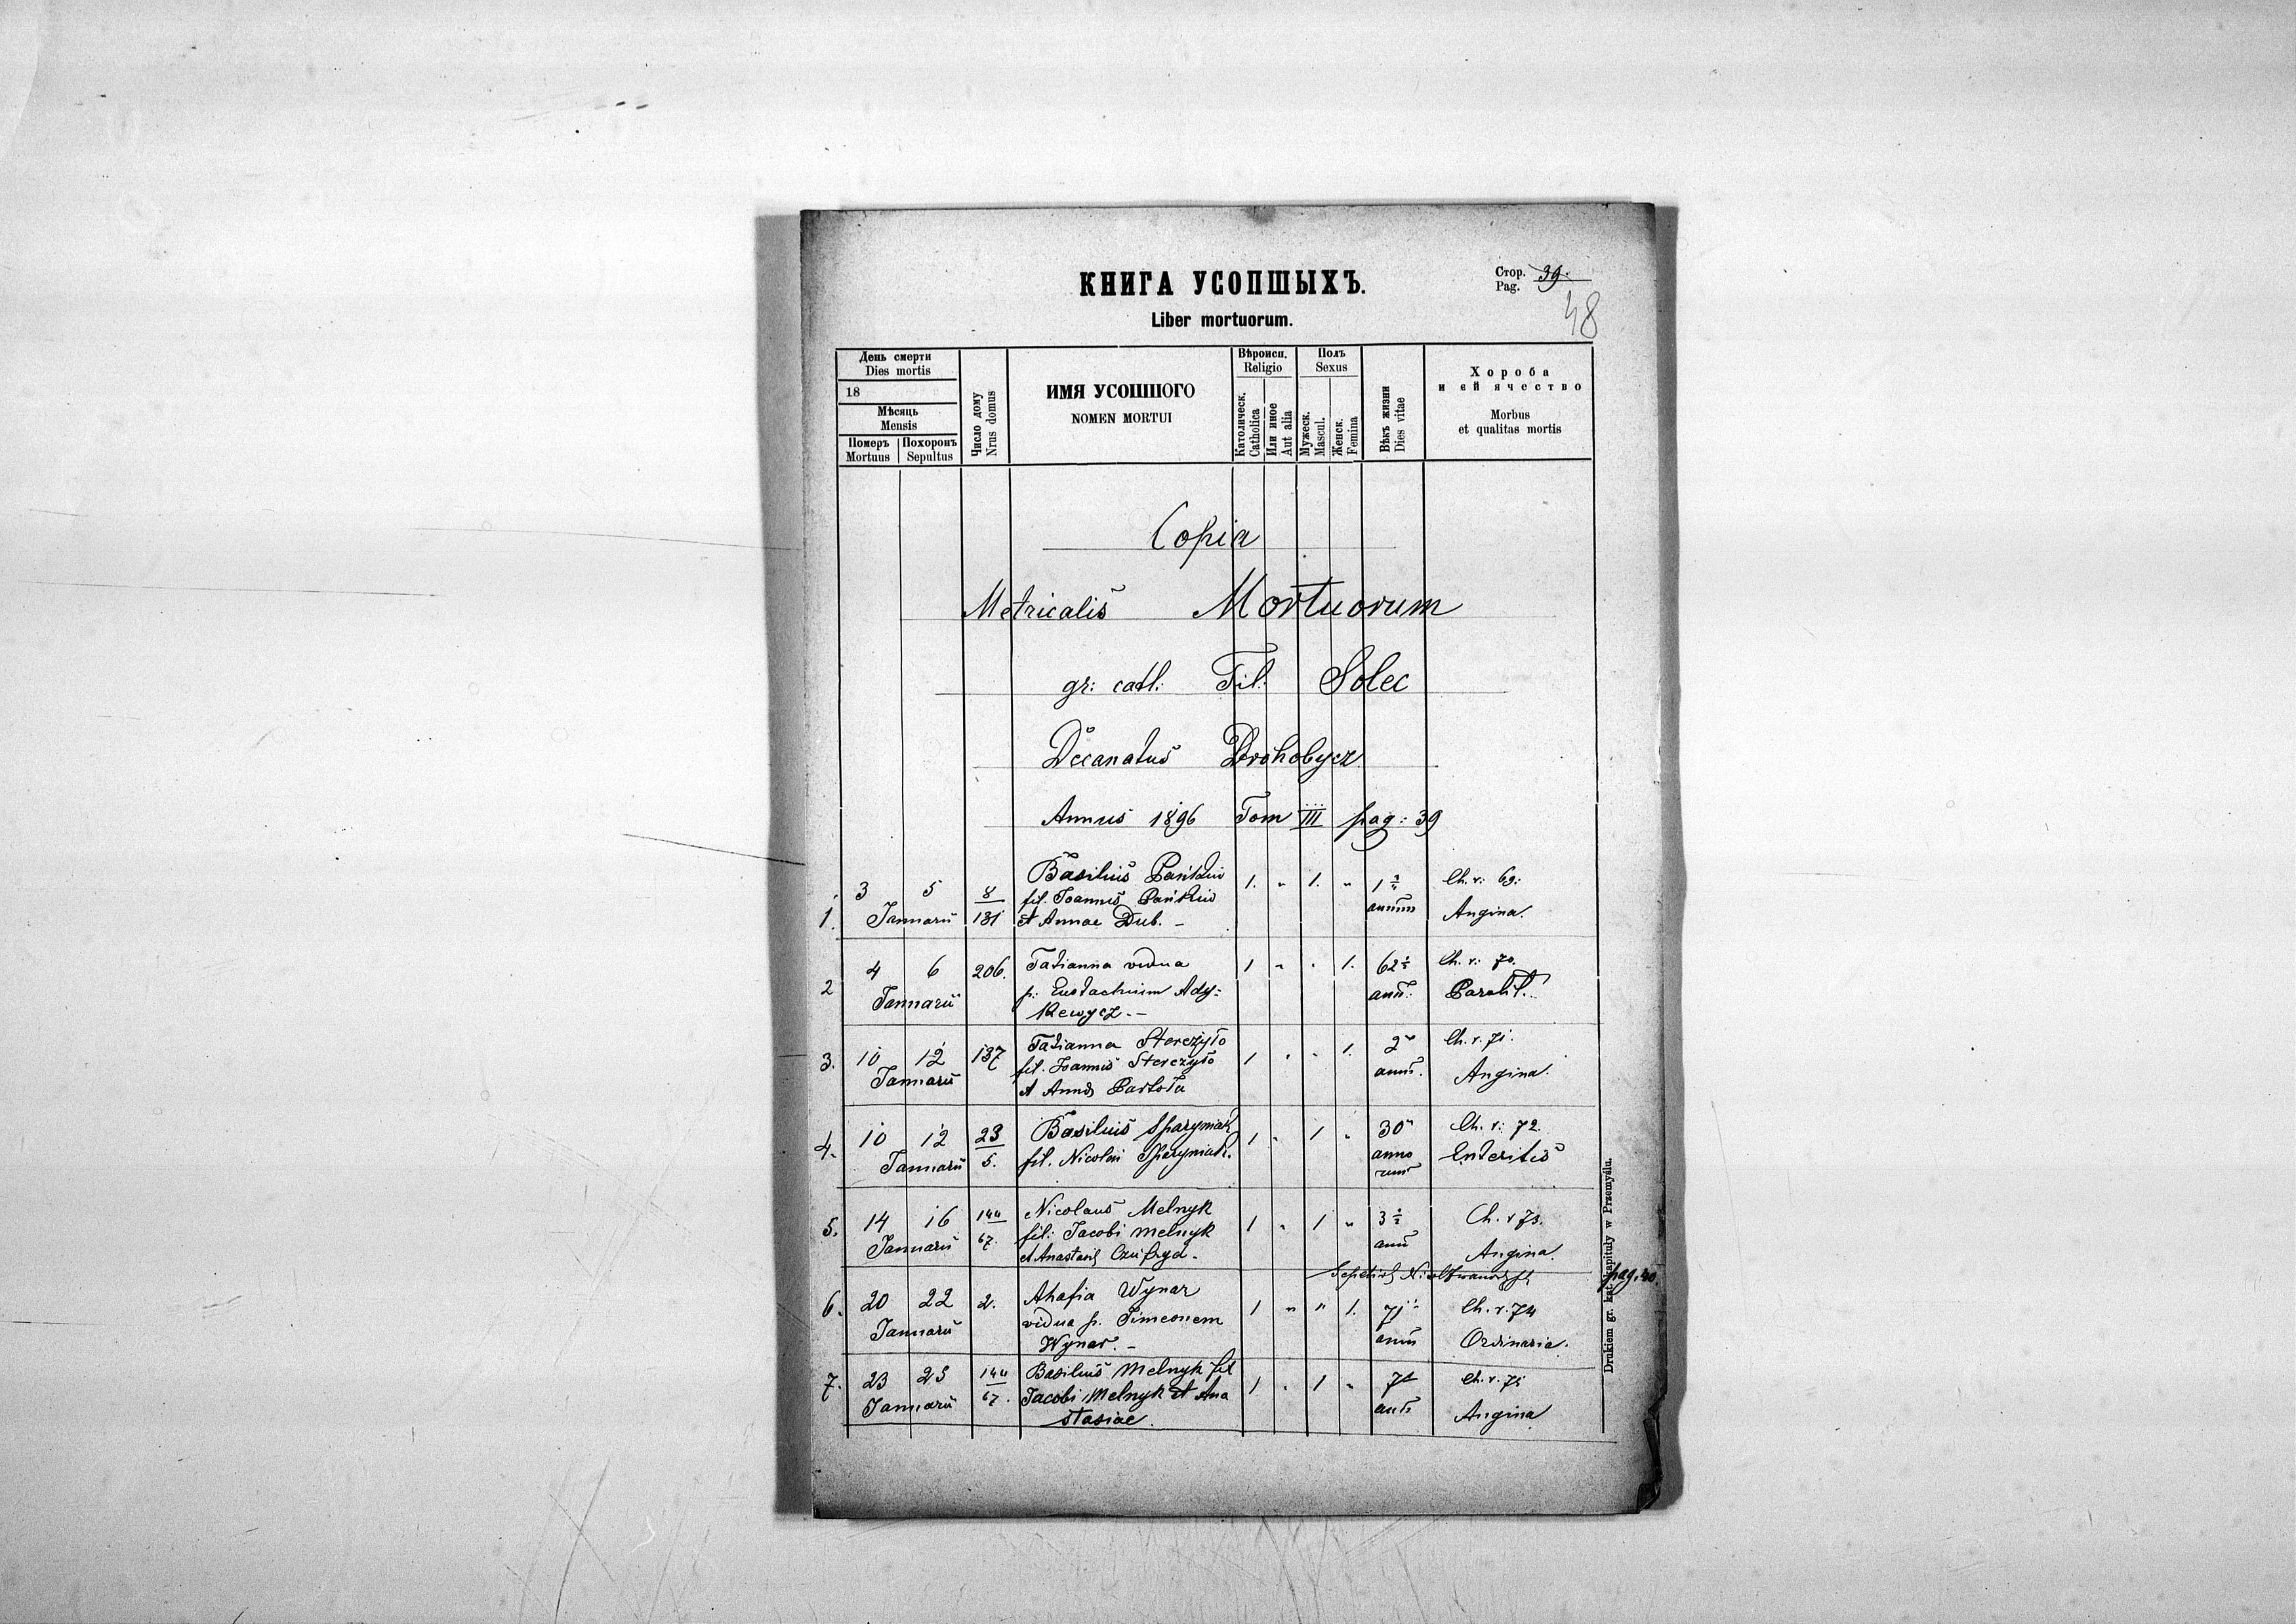 КНИГА УСОПШЫХЪ.
Liber mortuorum.
Стор. 39.
Pag.
48
День смерти
Dies mortis
18
Мѣсяць
Mensis
Померъ Похоронъ
Mortuus Sepultus
Число дому
Nrus domus
ИМЯ УСОПШОГО
NOMEN MORTUI
Вѣроисп.
Religio
Католическ.
Catholica
Или иное
Aut alia
Полъ
Sexus
Мужеск.
Mascul.
Женск.
Femina
Вѣкъ жизни
Dies vitae
Хороба
и ей ячество
Morbus
et qualitas mortis
Copia
Metricalis Mortuorum
gr: cath: Fil: Solec
Decanatus Drohobycz
Annus 1896 Tom III pag: 39
1. 3 5 Januarii 8/181
Basilius
fil. Joannis
et Annae Dub. –
1. " 1. " 1 annum
Ch. v: 69:
Angina.
2 4 6 Januarii 206.
Tatianna vidua
p: Eustachium Ady=
kewycz. –
1 " . 1. 62 ann:
Ch. v: 70.
3. 10 12 Januarii 137
Tatianna Sterczyło
fil. Joannis Sterczyło
et Anna
1 " " 1. 2 anni.
Ch. v. 71.
Angina.
4. 10 12 Januarii 23/5.
Basilius Sparyniak
fil. Nicolai Sparyniak.
1 " 1 " 30 anno
rum
Ch. v: 72.
Enteritis
5. 14 16 Januarii 144/67.
Nicolaus Melnyk
fil: Jacobi Melnyk
et Anastasiae
1 " 1 " 3 ann
Ch. v 73.
Angina.
pag. 40.
6. 20 22 Januarii 2.
Ahafia Wynar
vidua p. Simeonem
Wynar. –
1 " " 1. 71 ann
Ch. v. 74
Ordinaria.
7. 23 25 Januarii 144/67.
Basilius Melnyk fil
Jacobi Melnyk et Ana
stasiae.
1 " 1 " 7
Ch. v. 75
Angina
Drukiem gr. kat. kapituły w Przemyślu.